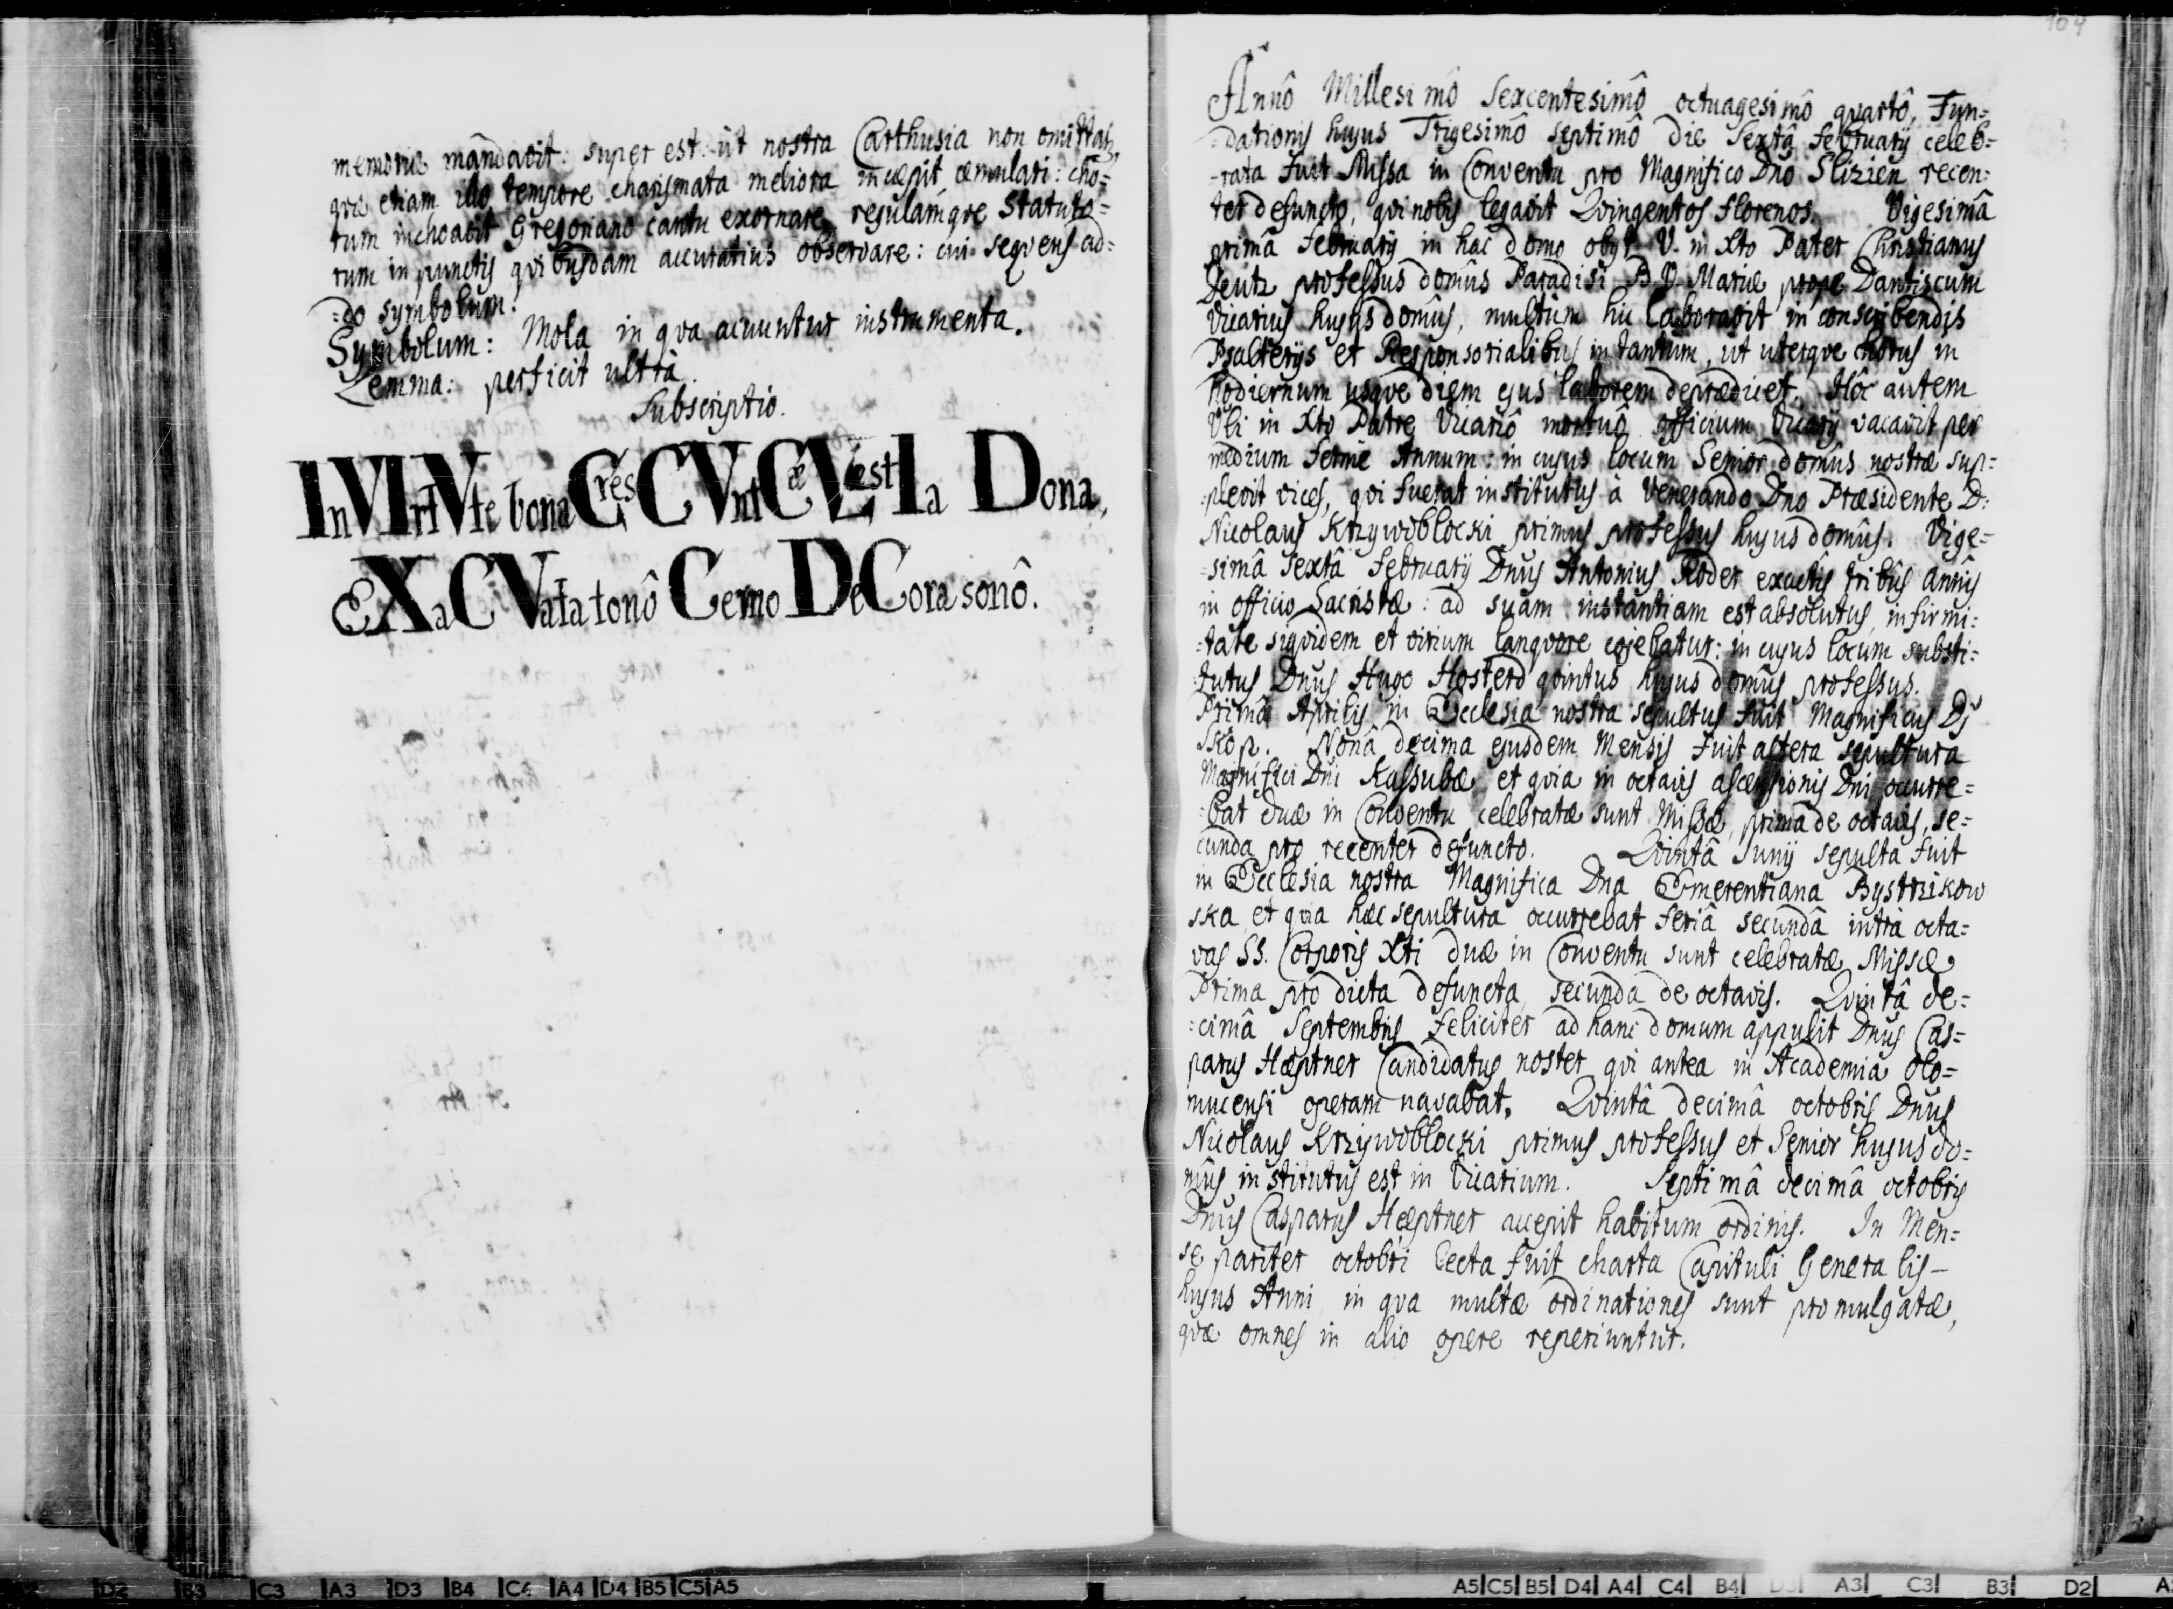 memoriæ mandavit: super est ut nostra Carthusia non omittat,
qvæ etiam illo tempore charismata meliora incæpit æmulari: cho=
rum inchoavit Gregoriano cantu exornare, regulamqve Statuto=
rum in punctis qvibusdam accuratius observare: cui seqvens ad=
=do symbolum.
Symbolum: Mola in qva acuuntur instrumenta.
Lemma: perficit ultrà.
Subscriptio.
InVIrtVte bona CresCVnt CæLestIa Dona,
EXaCVata tonô Cerno DeCora sonô.
104
Annô Millesimô Sexcentesimô octuagesimô qvartô, Fun=
=dationis hujus Trigesimô septimô die Sextâ februarij celeb=
=rata fuit Missa in Conventu pro Magnifico Dno Slizien recen=
ter defuncto, qvi nobis legavit Qvingentos florenos. Vigesimâ
primâ februarij in hac domo obijt V. in Xto Pater Christianus
Deutz professus domûs Paradisi B.V. Mariæ prope Dantiscum
Vicarius hujus domûs, multùm hic laboravit in conscribendis
Psalterijs et Responsorialibus in tantum, ut uterqve chorus in
hodiernum usqve diem ejus laborem deprædicet. Hôc autem
Vli in Xto Patre Vicariô mortuô officium Vicarij vacavit per
medium fermè Annum: in cujus locum Senior domûs nostræ sup=
=plevit vices, qvi fuerat institutus à Venerando Dno Præsidente D:
Nicolaus Krzywoblocki primus professus hujus domûs. Vige=
=simâ sextâ februarij Dnus Antonius Roder exactis tribûs annis
in officio Sacristæ: ad suam instantiam est absolutus, infirmi=
=tate siqvidem et virium langvore cogebatur: in cujus locum substi=
tutus Dnus Hugo Hosterd qvintus hujus domûs professus.
Primâ Aprilis in Ecclesia nostra sepultus fuit Magnificus Dj
skop. Nonâ decima ejusdem Mensis fuit altera sepultura
Magnifici Dni Kassubæ et qvia in octavis ascensionis Dni occurre=
=bat duæ in Conventu celebratæ sunt Missæ, prima de octavis, se=
cunda pro recenter defuncto. Qvintâ Junij sepulta fuit
in Ecclesia nostra Magnifica Dna Emerentiana Bystrzikow
ska et qvia hæc sepultura occurrebat feriâ secundâ intrà octa=
vas SS. Corporis Xti duæ in Conventu sunt celebratæ Missæ
Prima pro dicta defuncta, secunda de octavis. Qvintâ de=
=cimâ Septembris feliciter ad hanc domum appulit Dnus Cas=
parus Hæptner Candidatus noster qvi antea in Academia Olo=
mucensi operam navabat. Qvintâ decimâ octobris Dnus
Nicolaus Krzywoblocki primus professus et Senior hujus do=
mûs institutus est in Vicarium. Septimâ decimâ octobris
Dnus Casparus Hæptner accepit habitum ordinis. In Men=
se pariter octobri lecta fuit charta Capituli Generalis—
hujus Anni in qva multæ ordinationes sunt promulgatæ,
qvæ omnes in alio opere reperiuntur.
D2 B3 C3 A3 D3 B4 C4 A4 D4 B5 C5 A5
A5 C5 B5 D4 A4 C4 B4 D3 A3 C3 B3 D2